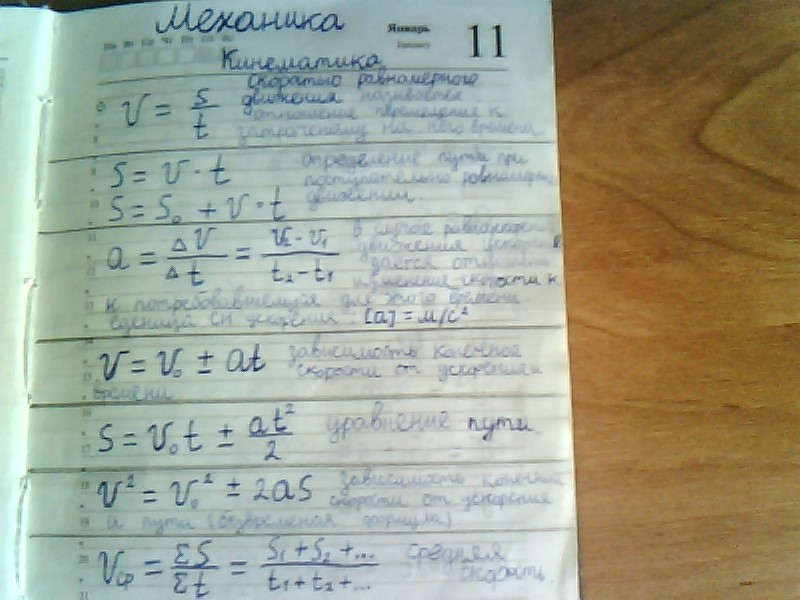 Механика
Январь
January
11
Кинематика
V = S/t
скоростью равномерного
движения называется
отношение перемещения к
затраченому на него времени
S = V · t
S = S₀ + V · t
определение пути при
поступательно равномерном
движении.
a = ΔV/Δt = (V₂ - V₁)/(t₂ - t₁)
В случае
движения
изменения скорости к
к потребовавшемуся для этого времени
еденица СИ ускорения: [a] = м/с²
V = V₀ ± at
зависимость конечной
скорости от ускорения и
времени
S = V₀t ± at²/2
уравнение пути.
V² = V₀² ± 2aS
зависимость конечной
скорости от ускорения
и пути (безвременая формула)
Vср = ΣS/Σt = (S₁ + S₂ + ...)/(t₁ + t₂ + ...)
средняя
скорость